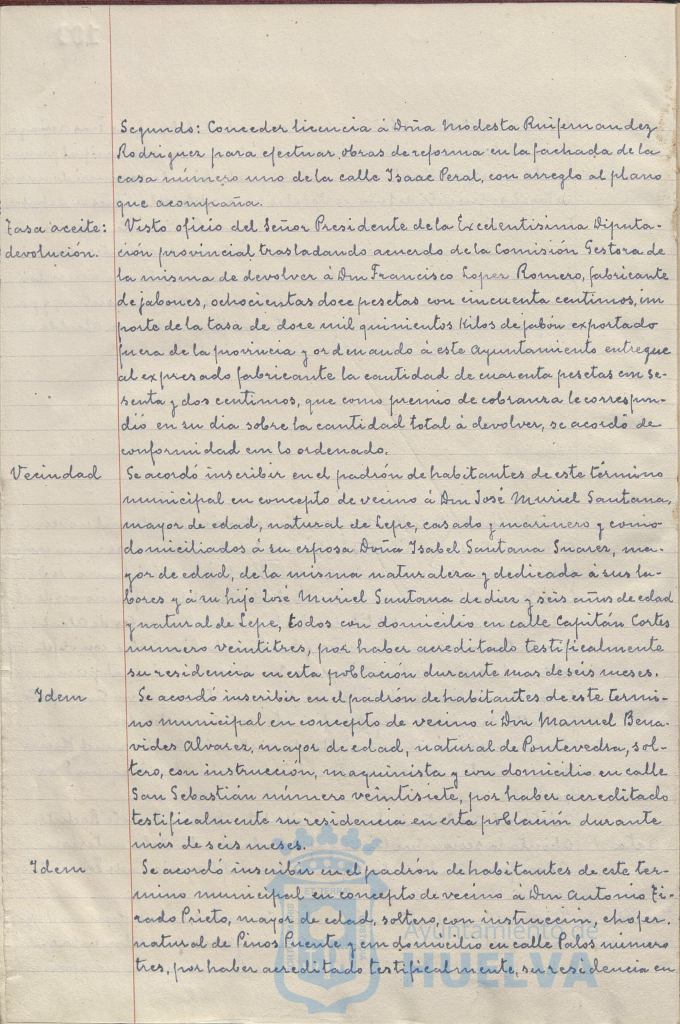 Segundo: Conceder licencia á Doña Modesta Ruifernandez
Rodriguez para efectuar obras de reforma en la fachada de la
casa número uno de la calle Isaac Peral, con arreglo al plano
que acompaña.
Tasa aceite: Visto oficio del Señor Presidente de la Excelentisima Diputa-
devolución. ción provincial, trasladando acuerdo de la Comisión Gestora de
la misma de devolver á Don Francisco Lopez Romero, fabricante
de jabones, ochocientas doce pesetas con cincuenta centimos, im
porte de la tasa de doce mil quinientos kilos de jabón exportado
fuera de la provincia y ordenando á este Ayuntamiento entregue
al expresado fabricante la cantidad de cuarenta pesetas con se-
senta y dos centimos, que como premio de cobranza le correspon-
dió en su dia sobre la cantidad total á devolver, se acordó de
conformidad con lo ordenado.
Vecindad Se acordó inscribir en el padrón de habitantes de este término
municipal en concepto de vecino á Don José Muriel Santana,
mayor de edad, natural de Lepe, casado y marinero y como
domiciliados á su esposa Doña Isabel Santana Suarez, ma-
yor de edad, de la misma naturaleza y dedicada á sus la-
bores y á su hijo José Muriel Santana de diez y seis años de edad
y natural de Lepe, todos con domicilio en calle Capitán Cortes
numero veintitres, por haber acreditado testificalmente
su residencia en esta población durante mas de seis meses.
Idem Se acordó inscribir en el padrón de habitantes de este termi-
no municipal en concepto de vecino á Don Manuel Bena-
vides Alvarez, mayor de edad, natural de Pontevedra, sol-
tero, con instrucción, maquinista y con domicilio en calle
San Sebastián número veintisiete, por haber acreditado
testificalmente su residencia en esta población durante
más de seis meses.
Idem Se acordó inscribir en el padrón de habitantes de este ter-
mino municipal en concepto de vecino á Don Antonio Ti-
rado Prieto, mayor de edad, soltero, con instrucción, chofer,
natural de Pinos Puente y con domicilio en calle Palos número
tres, por haber acreditado testificalmente, su residencia en
Ayuntamiento de
HUELVA